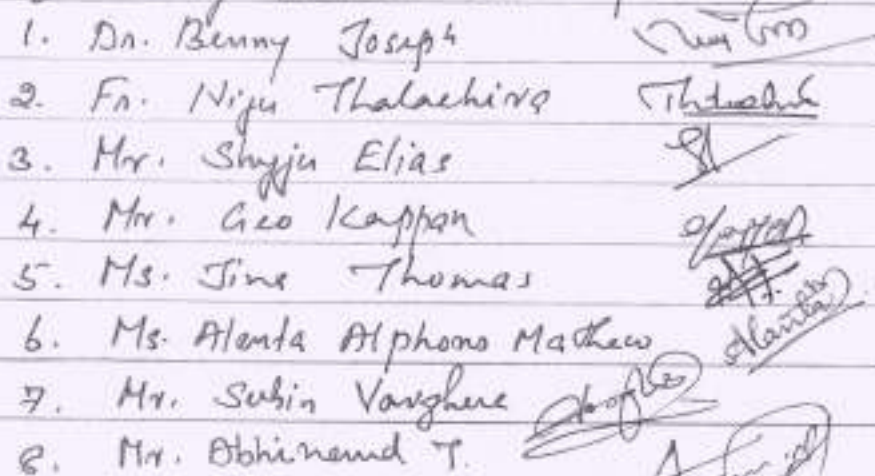 1. Dr. Benny Joseph
2. Fr. Niju Thalachira
3. Mr. Shyju Elias
4. Mr. Geo Kappan
5. Ms. Jina Thomas
6. Ms. Alenta Alphons Mathew
7. Mr. Subin Varghese
8. Mr. Abhinand T.